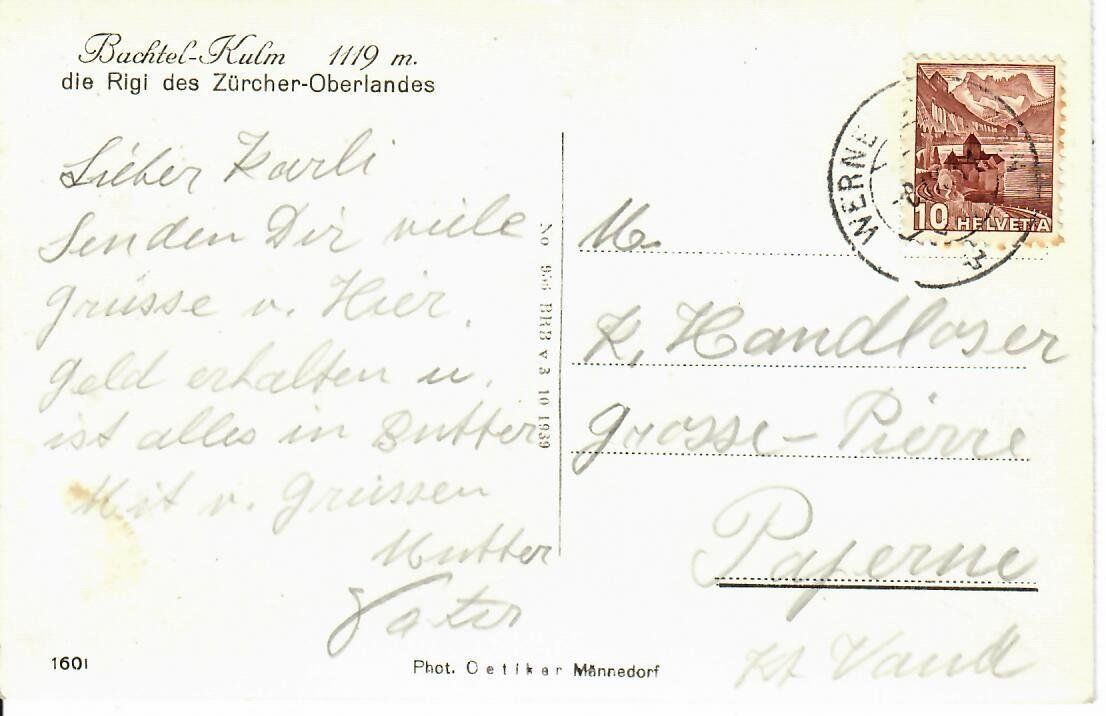 Bachtel-Kulm 1119 m.
die Rigi des Zürcher-Oberlandes
Lieber Karli
Senden Dir viele
Grüsse v. Hier,
Geld erhalten u.
ist alles in Butter
Mit v. Grüssen
Mutter
Vater
1601
Phot. Oetiker Männedorf
BRB v 3 10 1939
WERNE
10 HELVETIA
M.
K. Handloser
Grosse-Pierre
Payerne
Kt Vaud